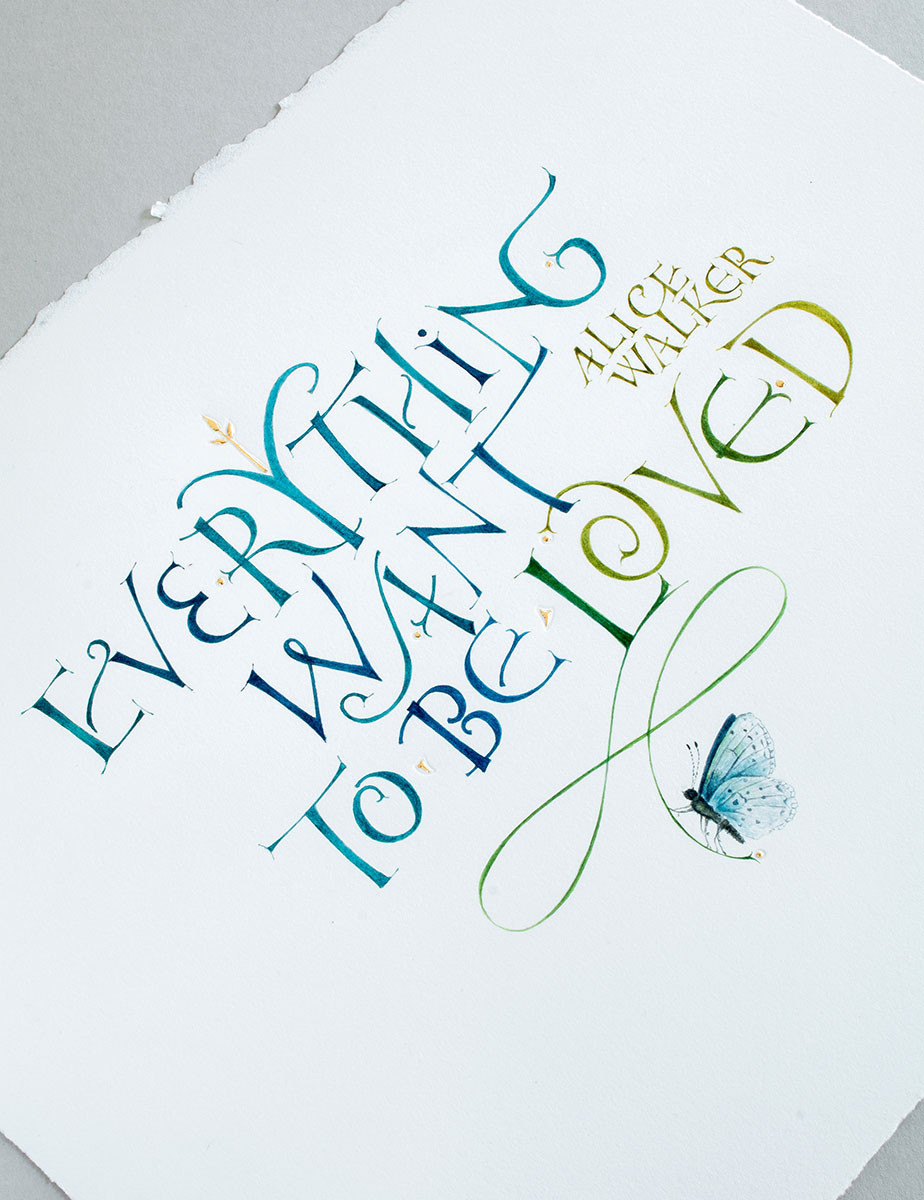 EVERYTHING
WANT
TO BE LOVED
ALICE
WALKER